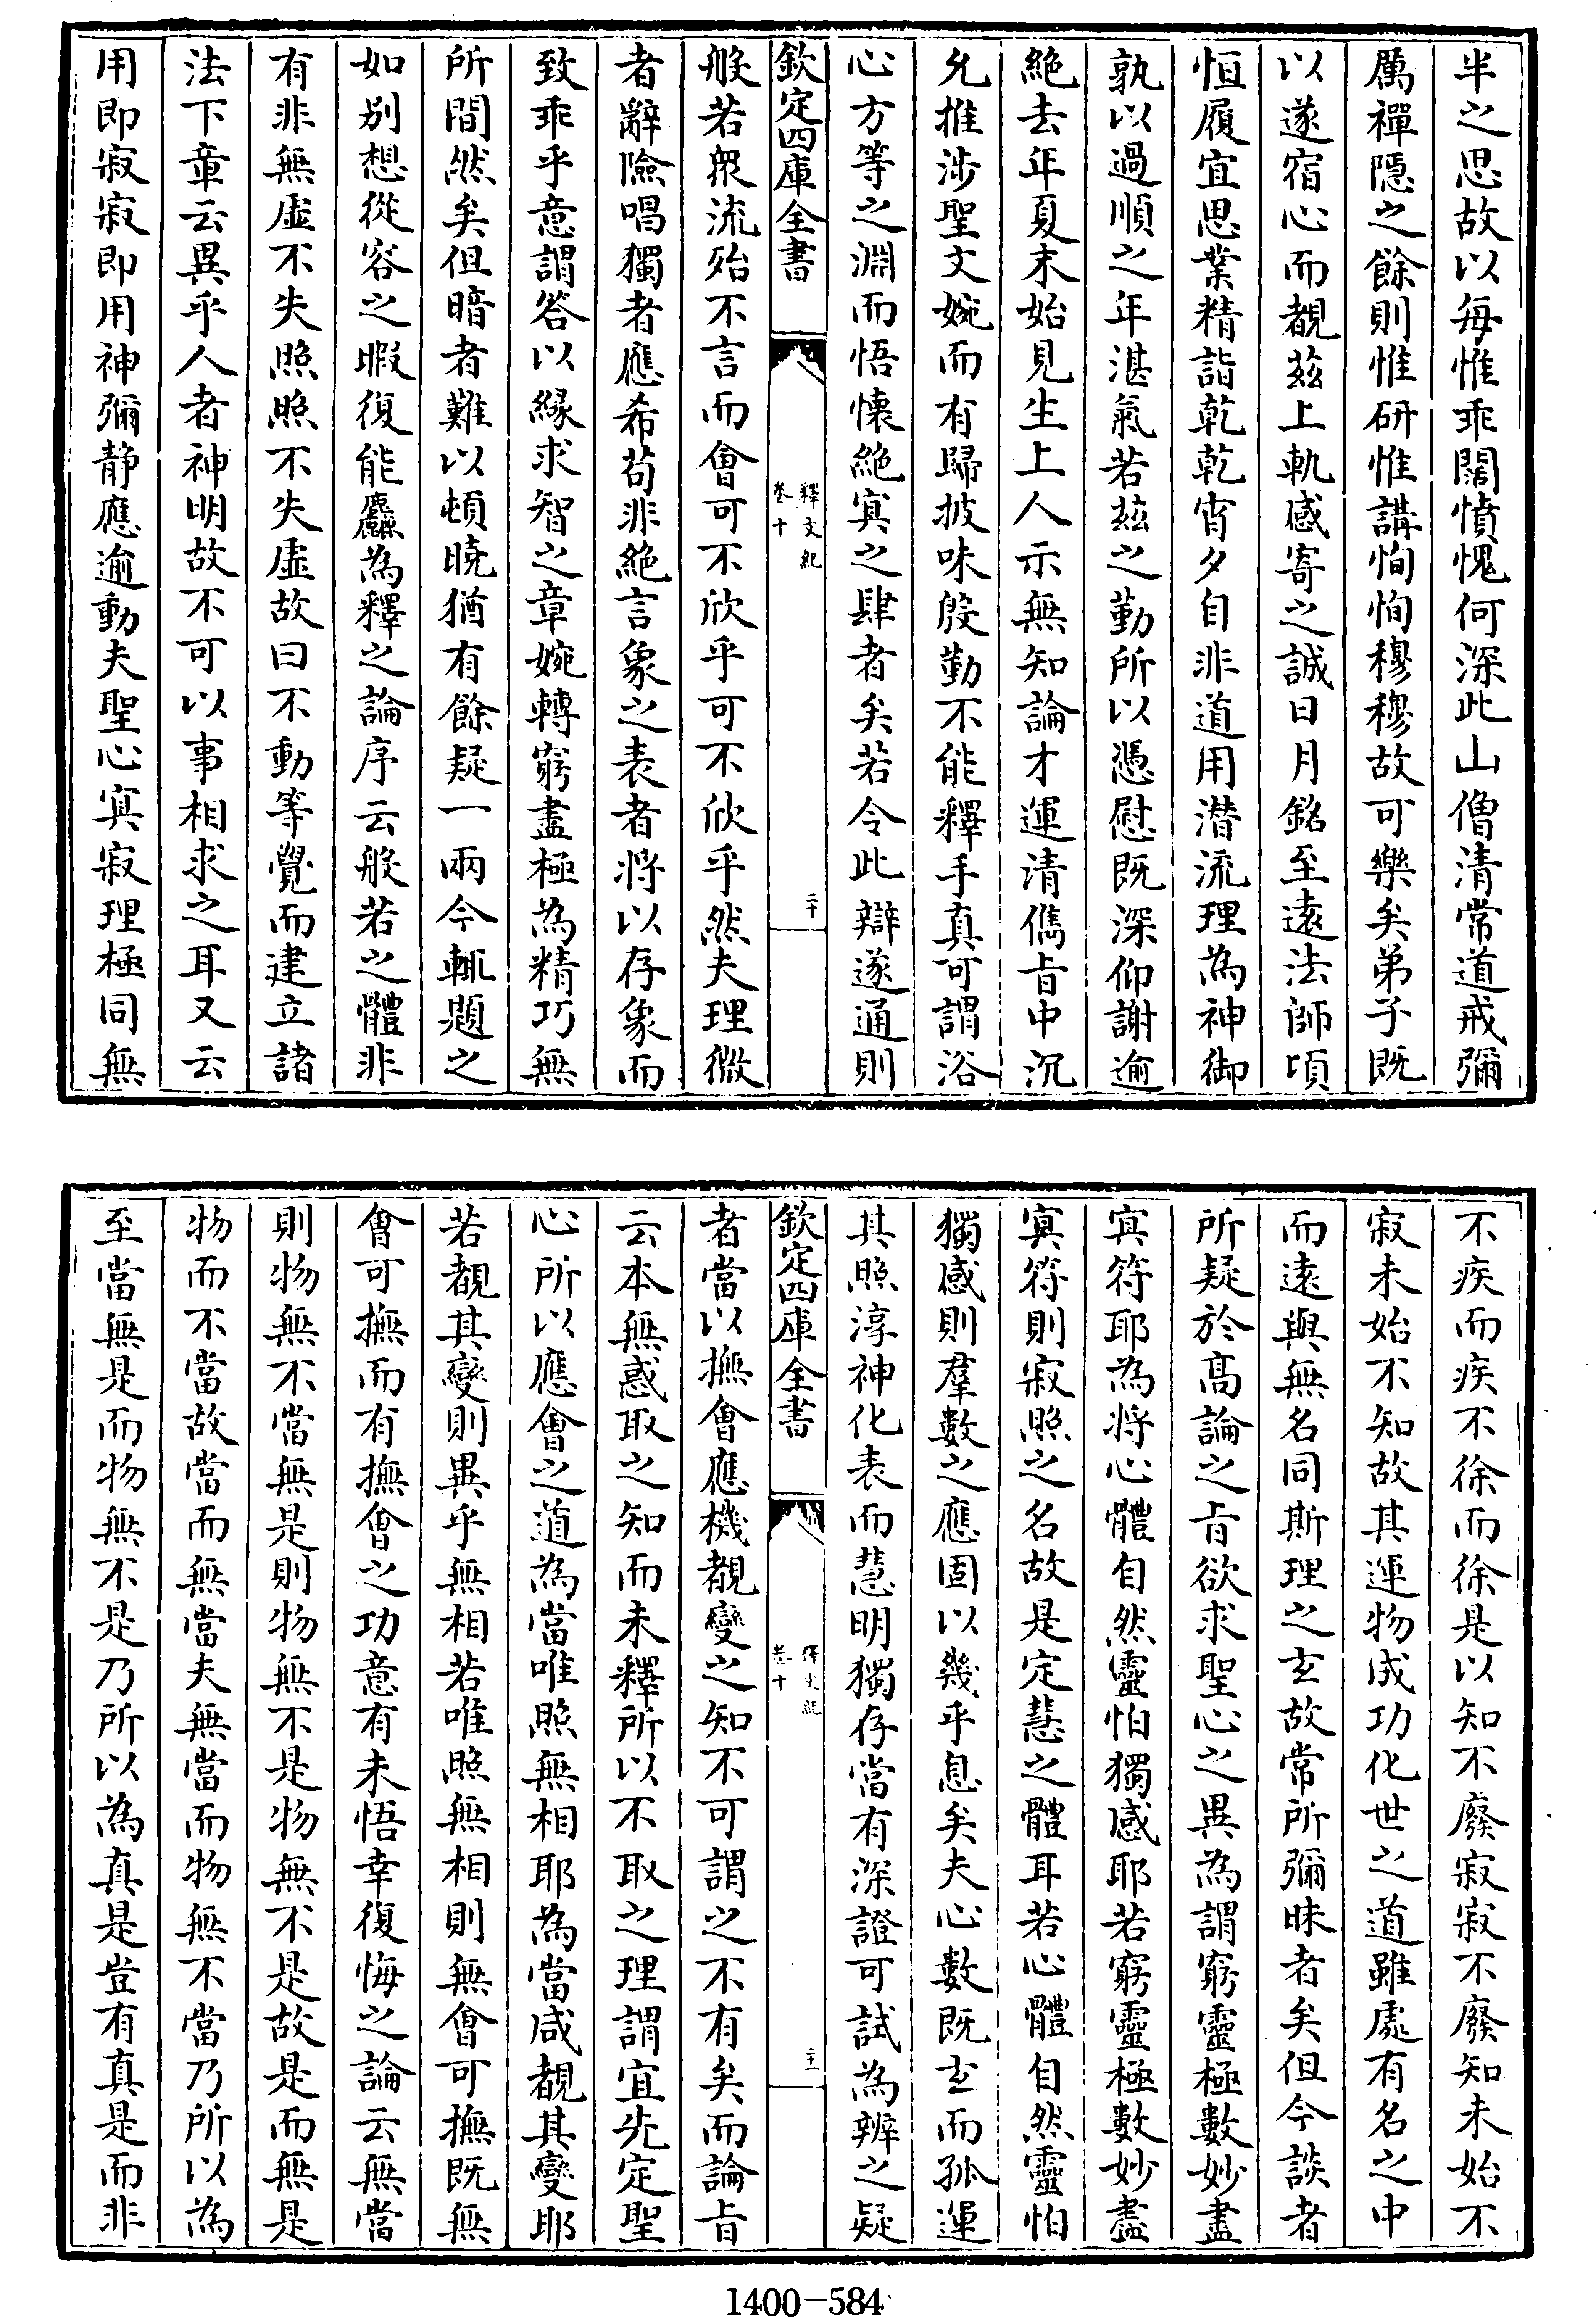 半之思故以每惟乖闊憤愧何深此山僧清常道戒彌
厲禪隱之餘則惟研惟講恂恂穆穆故可樂矣弟子既
以遂宿心而覩茲上軌感寄之誠日月銘至遠法師頃
恒履宜思業精詣乾乾宵夕自非道用潛流理為神御
孰以過順之年湛氣若茲之勤所以憑慰既深仰謝逾
絶去年夏末始見生上人示無知論才運清儁旨中沉
允推涉聖文婉而有歸披味殷勤不能釋手真可謂浴
心方等之淵而悟懷絶冥之肆者矣若令此辯遂通則
欽定四庫全書
釋文紀
卷十
二十
般若衆流殆不言而會可不欣乎可不欣乎然夫理微
者辭險唱獨者應希苟非絶言象之表者將以存象而
致乖乎意謂答以縁求智之章婉轉窮盡極為精巧無
所間然矣但暗者難以頓曉猶有餘疑一兩今輒題之
如别想從容之暇復能麤為釋之論序云般若之體非
有非無虚不失照照不失虚故曰不動等覺而建立諸
法下章云異乎人者神明故不可以事相求之耳又云
用即寂寂即用神彌静應逾動夫聖心冥寂理極同無
不疾而疾不徐而徐是以知不廢寂寂不廢知未始不
寂未始不知故其運物成功化世之道雖處有名之中
而遠與無名同斯理之玄故常所彌昧者矣但今談者
所疑於髙論之旨欲求聖心之異為謂窮靈極數妙盡
冥符耶為將心體自然靈怕獨感耶若窮靈極數妙盡
冥符則寂照之名故是定慧之體耳若心體自然靈怕
獨感則羣數之應固以幾乎息矣夫心數既玄而孤運
其照淳神化表而慧明獨存當有深證可試為辨之疑
欽定四庫全書
釋文紀
卷十
二十一
者當以撫會應機覩變之知不可謂之不有矣而論旨
云本無惑取之知而未釋所以不取之理謂宜先定聖
心所以應會之道為當唯照無相耶為當咸覩其變耶
若覩其變則異乎無相若唯照無相則無會可撫既無
會可撫而有撫會之功意有未悟幸復誨之論云無當
則物無不當無是則物無不是物無不是故是而無是
物而不當故當而無當夫無當而物無不當乃所以為
至當無是而物無不是乃所以為真是豈有真是而非
1400—584